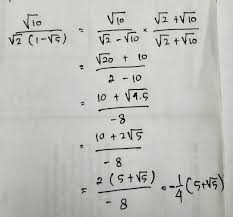 √10 / √2 (1-√5) = √10 / √2 - √10 × √2 + √10 / √2 + √10
= √20 + 10 / 2 - 10
= 10 + √4.5 / -8
= 10 + 2√5 / -8
= 2 (5 + √5) / -8 = -1/4 (5+√5)